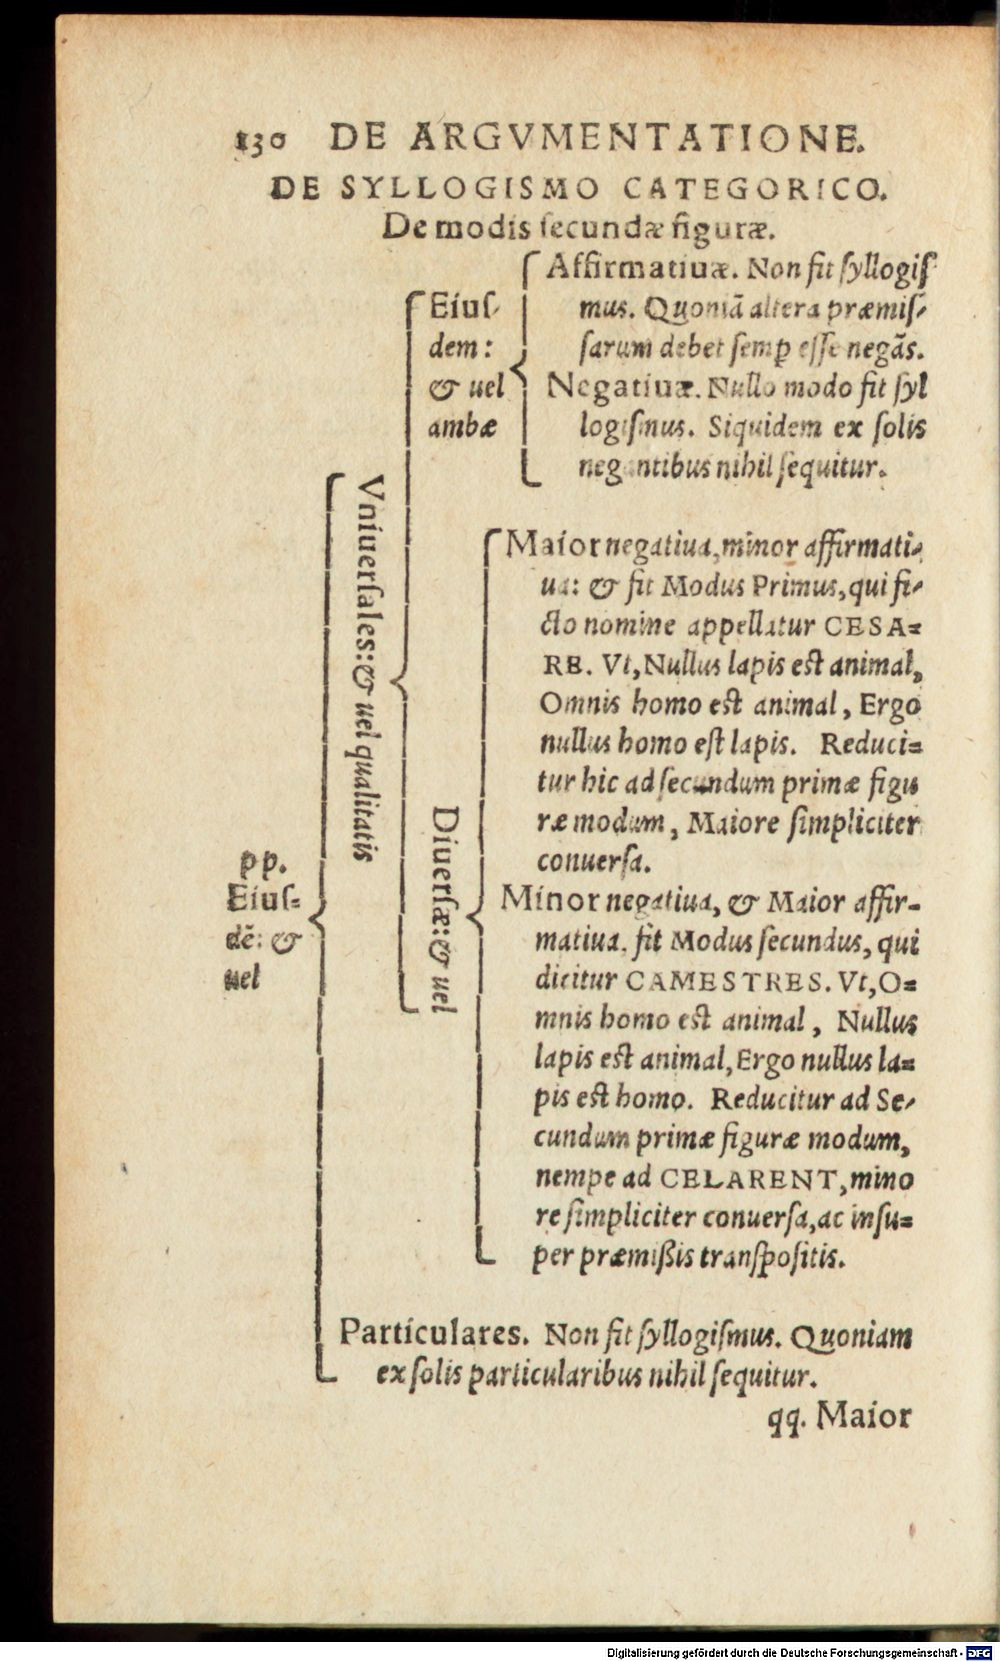 130 DE ARGVMENTATIONE.
DE SYLLOGISMO CATEGORICO.
De modis ſecundæ figuræ.
pp.
Eiuſ-
dē: &
uel
Vniuerſales: & uel qualitatis
Eiuſ-
dem:
& uel
ambæ
Affirmatiuæ. Non fit ſyllogiſ
mus. Quoniā altera præmiſ-
ſarum debet ſemp eſſe negās.
Negatiuæ. Nullo modo fit ſyl
logiſmus. Siquidem ex ſolis
negantibus nihil ſequitur.
Diuerſæ: & uel
Maior negatiua, minor affirmati-
ua: & fit Modus Primus, qui fi-
cto nomine appellatur CESA-
RE. Vt, Nullus lapis eſt animal,
Omnis homo eſt animal, Ergo
nullus homo eſt lapis. Reduci-
tur hic ad ſecundum primæ figu
ræ modum, Maiore ſimpliciter
conuerſa.
Minor negatiua, & Maior affir-
matiua. fit Modus ſecundus, qui
dicitur CAMESTRES. Vt, O-
mnis homo eſt animal, Nullus
lapis eſt animal, Ergo nullus la-
pis eſt homo. Reducitur ad Se-
cundum primæ figuræ modum,
nempe ad CELARENT, mino
re ſimpliciter conuerſa, ac inſu-
per præmißis tranſpoſitis.
Particulares. Non fit ſyllogiſmus. Quoniam
ex ſolis particularibus nihil ſequitur.
qq. Maior
Digitalisierung gefördert durch die Deutsche Forschungsgemeinschaft - DFG